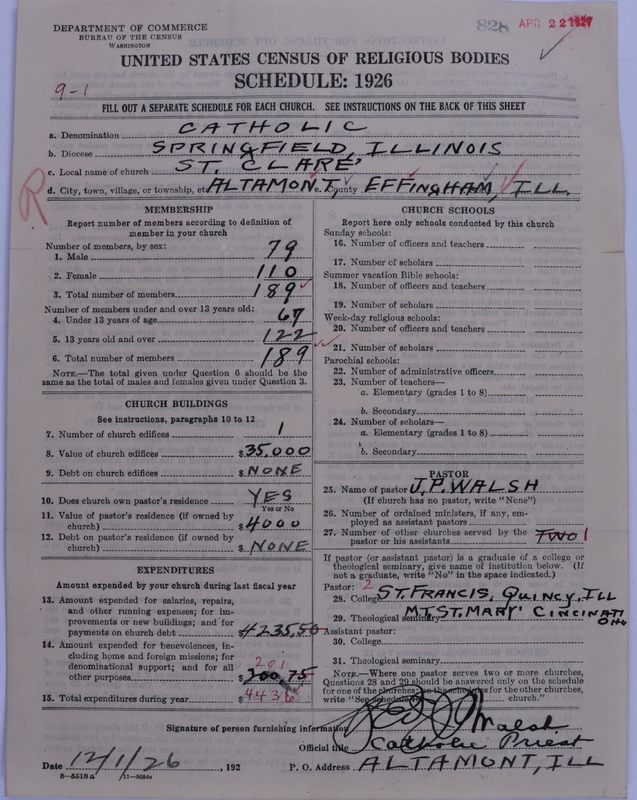 DEPARTMENT OF COMMERCE
BUREAU OF THE CENSUS
WASHINGTON
828 APR 22 1927
UNITED STATES CENSUS OF RELIGIOUS BODIES
SCHEDULE: 1926
9-1
FILL OUT A SEPARATE SCHEDULE FOR EACH CHURCH. SEE INSTRUCTIONS ON THE BACK OF THIS SHEET
a. Denomination CATHOLIC
b. Diocese SPRINGFIELD, ILLINOIS
c. Local name of church ST. CLARE'
d. City, town, village, or township, etc. ALTAMONT, County EFFINGHAM, ILL.
R
MEMBERSHIP
Report number of members according to definition of
member in your church
Number of members, by sex:
1. Male 79
2. Female 110
3. Total number of members 189
Number of members under and over 13 years old:
4. Under 13 years of age 67
5. 13 years old and over 122
6. Total number of members 189
NOTE.—The total given under Question 6 should be the
same as the total of males and females given under Question 3.
CHURCH BUILDINGS
See instructions, paragraphs 10 to 12
7. Number of church edifices 1
8. Value of church edifices $35,000
9. Debt on church edifices $NONE
10. Does church own pastor's residence YES
Yes or No
11. Value of pastor's residence (if owned by
church) $4000
12. Debt on pastor's residence (if owned by
church) $NONE
EXPENDITURES
Amount expended by your church during last fiscal year
13. Amount expended for salaries, repairs,
and other running expenses; for im-
provements or new buildings; and for
payments on church debt $4235,50
14. Amount expended for benevolences, in-
cluding home and foreign missions; for
denominational support; and for all
201
other purposes 200,75
15. Total expenditures during year $4436
CHURCH SCHOOLS
Report here only schools conducted by this church
Sunday schools:
16. Number of officers and teachers
17. Number of scholars
Summer vacation Bible schools:
18. Number of officers and teachers
19. Number of scholars
Week-day religious schools:
20. Number of officers and teachers
21. Number of scholars
Parochial schools:
22. Number of administrative officers
23. Number of teachers—
a. Elementary (grades 1 to 8)
b. Secondary
24. Number of scholars—
a. Elementary (grades 1 to 8)
b. Secondary
PASTOR
25. Name of pastor J.P. WALSH
(If church has no pastor, write "None")
26. Number of ordained ministers, if any, em-
ployed as assistant pastors
27. Number of other churches served by the
pastor or his assistants TWO 1
If pastor (or assistant pastor) is a graduate of a college or
theological seminary, give name of institution below. (If
not a graduate, write "No" in the space indicated.)
Pastor: 2
28. College ST. FRANCIS, QUINCY, ILL
29. Theological seminary MT. ST. MARY' CINCINATI
OHO
Assistant pastor:
30. College
31. Theological seminary
NOTE.—Where one pastor serves two or more churches,
Questions 28 and 29 should be answered only on the schedule
for one of the churches; on the schedules for the other churches,
write "See schedule for church."
Signature of person furnishing information Walsh
Official title Catholic Priest
Date 12/1/26, 192 P. O. Address ALTAMONT, ILL
8-5518a 11-9054